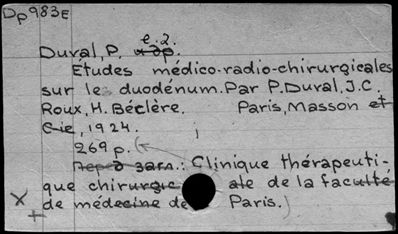 Dp983E
e.2.
Duval, P.
Études médico-radio-chirurgicales
sur le duodénum. Par P. Duval, J.C.
Roux, H. Béclère. Paris, Masson et
Cie, 1924.
269 p.
Clinique thérapeuti-
que chirurgicale de la faculté
de médecine de Paris.)